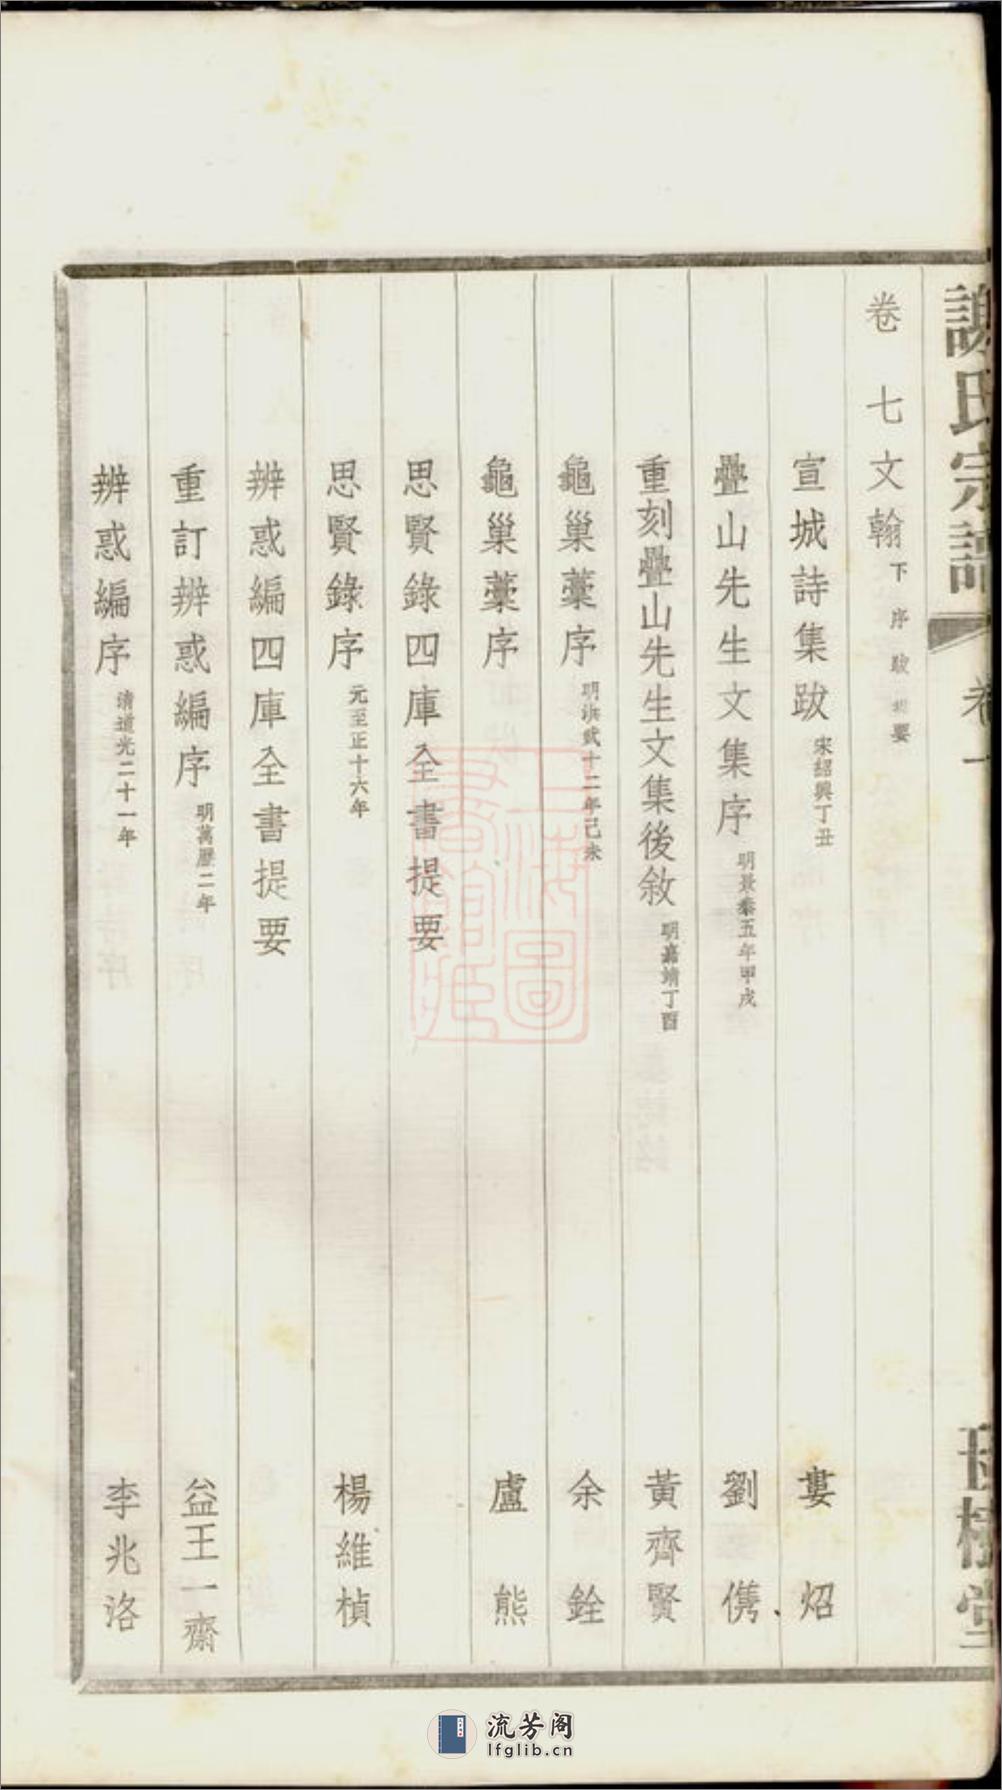 謝氏宗譜 卷一
卷七文翰下 序 跋 提要
宣城詩集跋 宋紹興丁丑 婁炤
疊山先生文集序 明景泰五年甲戌 劉儁
重刻疊山先生文集後敘 明嘉靖丁酉 黃齊賢
龜巢藁序 明洪武十二年己未 余銓
龜巢藁序 盧熊
思賢錄四庫全書提要
思賢錄序 元至正十六年 楊維楨
辨惑編四庫全書提要
重訂辨惑編序 明萬曆二年 益王一齋
辨惑編序 清道光二十一年 李兆洛
上海圖書館藏
流芳阁
lfglib.cn